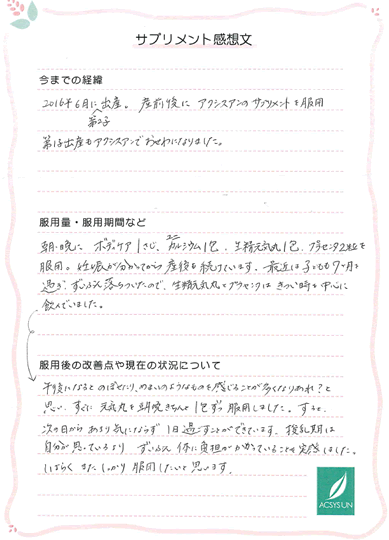 サプリメント感想文
今までの経緯
2016年6月に出産。産前後に アクシスアンの サプリメントを服用
第2子
第1子出産も アクシスアンで おせわになりました。
服用量・服用期間など
ユニ
朝・晩に ボディケア 1さじ、カルシウム1包、生精元気丸1包、プラセンタ2粒を
服用。妊娠が分かってから 産後も続けています。最近は 子どもも7ヶ月を
過ぎ、ずいぶん落ちついたので、生精元気丸と プラセンタは きつい時を中心に
飲んでいました。
服用後の改善点や現在の状況について
午後になると のぼせたり、めまいのようなものを感じることが多くなりあれ?と
思い、すぐに 元気丸を 朝晩きちんと 1包ずつ服用しました。すると、
次の日から あまり気にならず 1日過ごすことができています。授乳期は
自分が思っているより ずいぶん 体に負担がかかっていることを実感しました。
しばらく また しっかり 服用したいと思います。
ACSYSUN